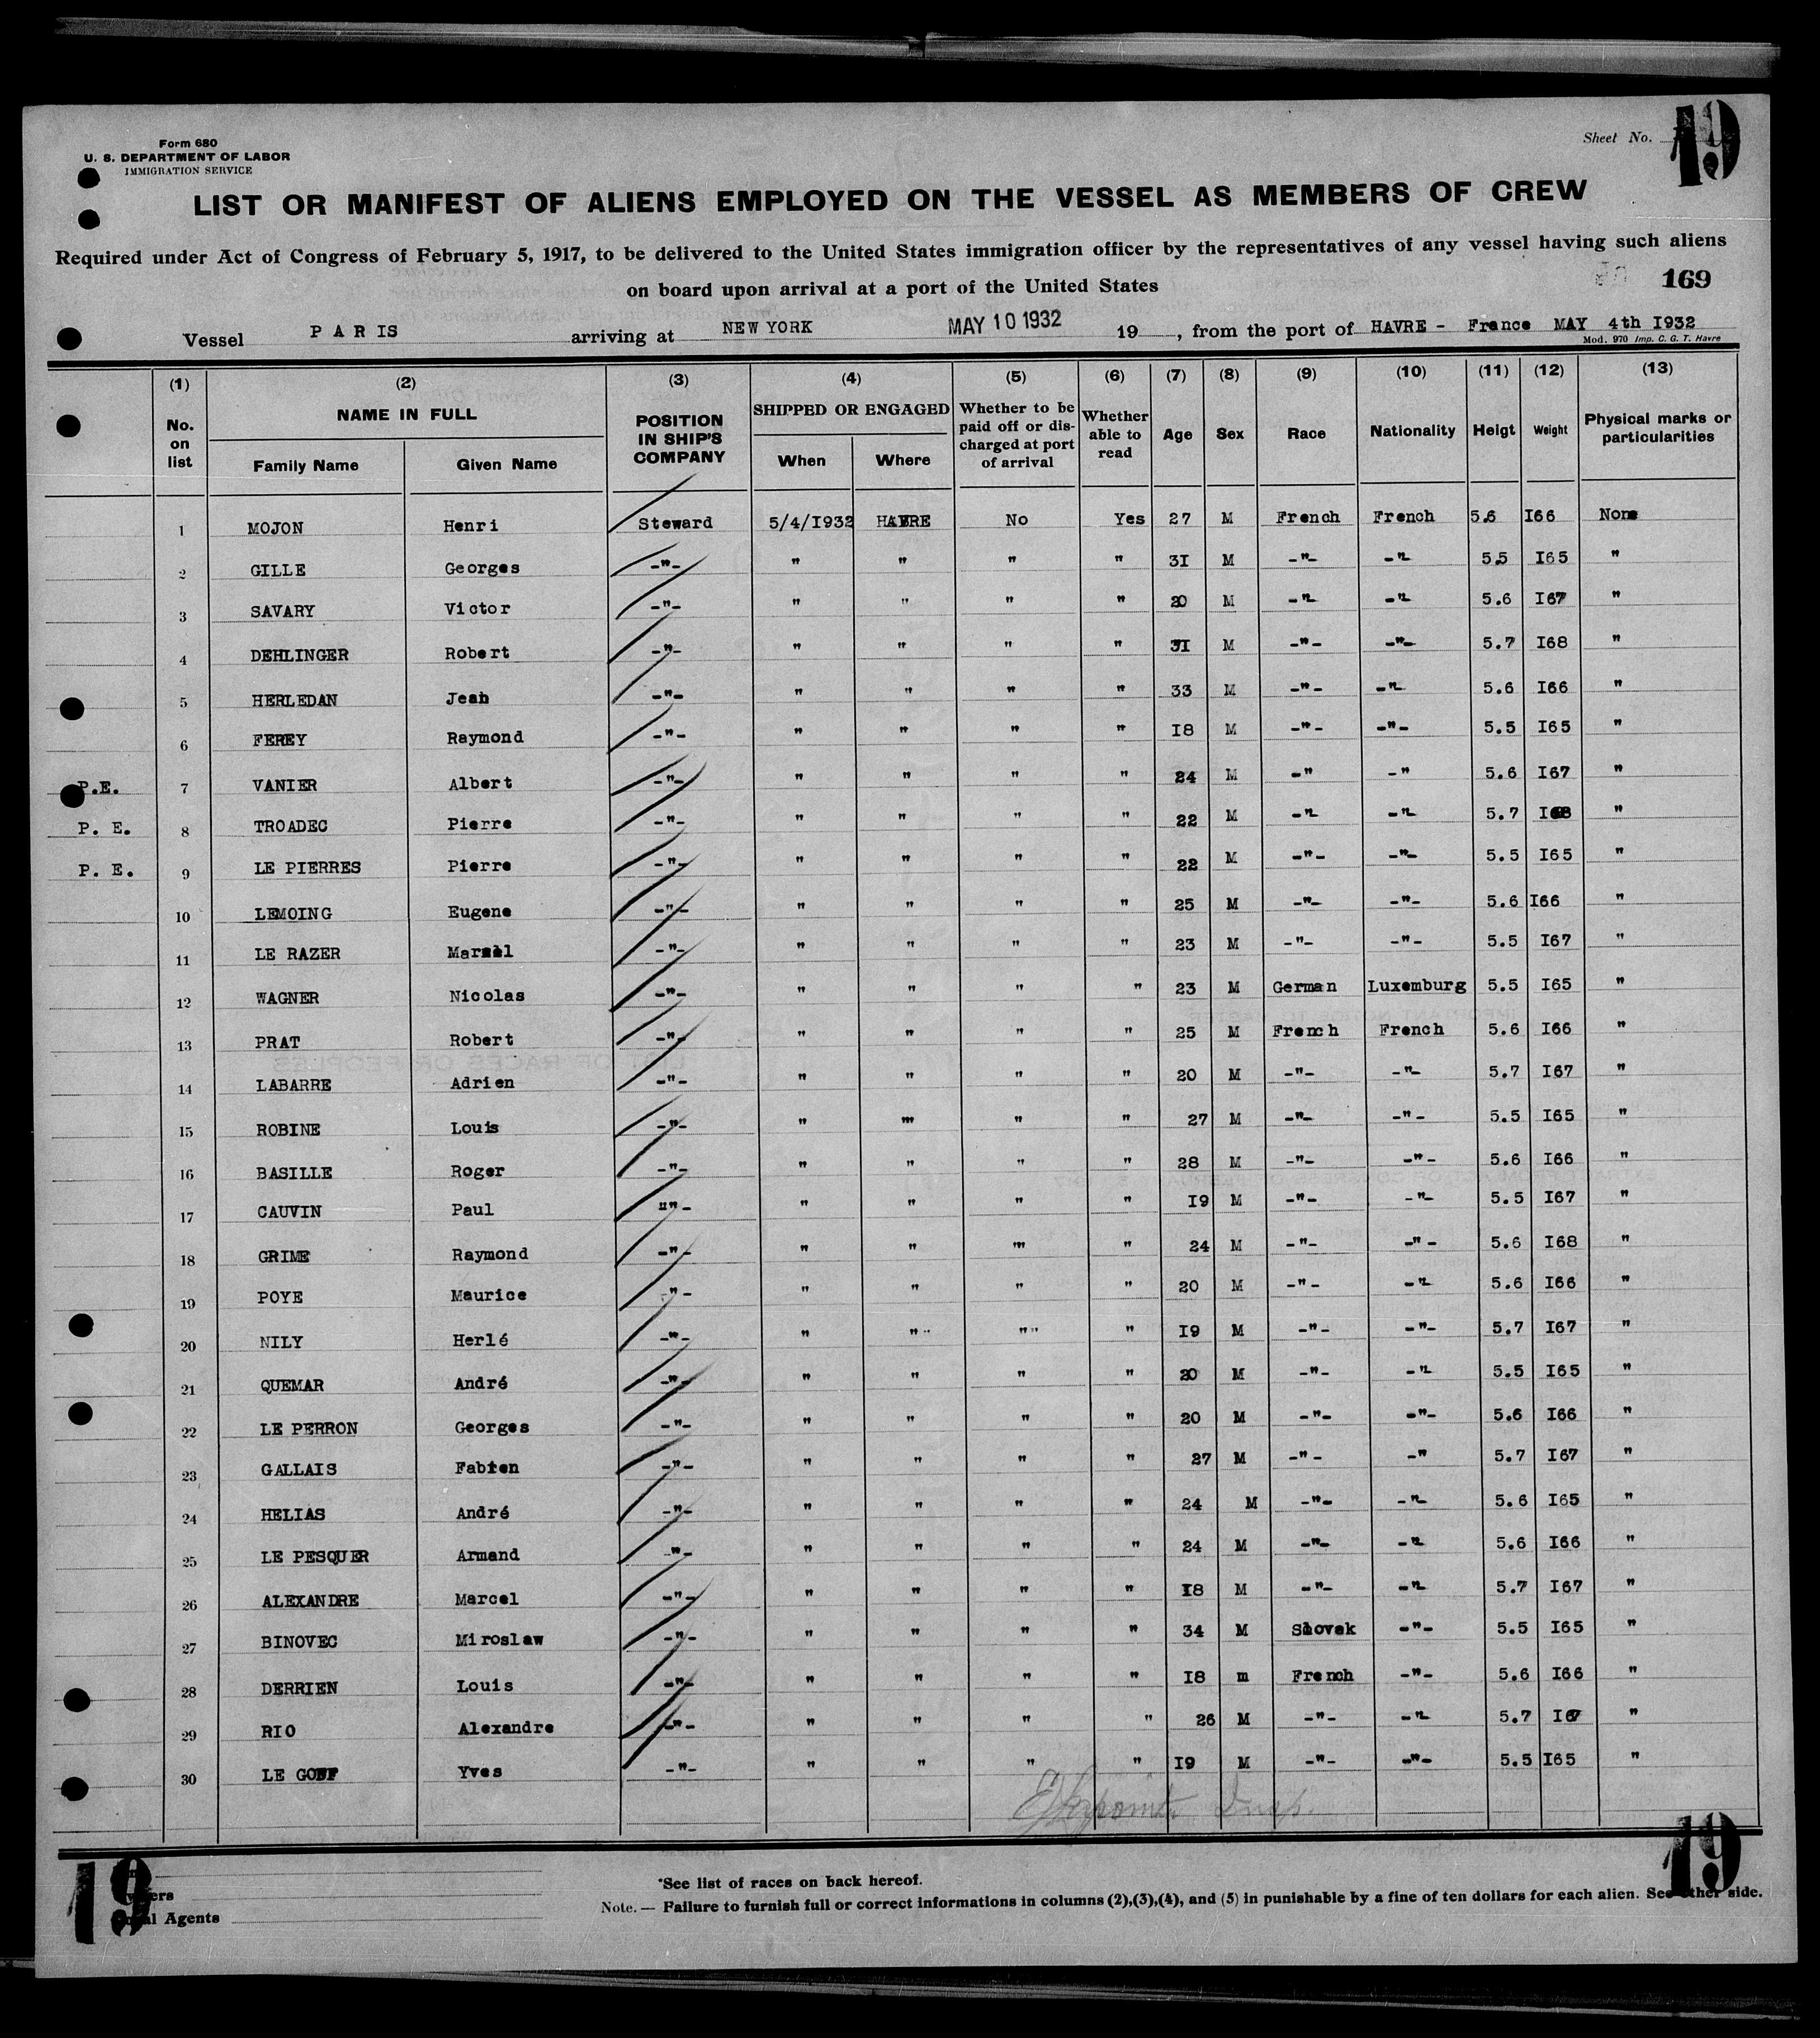 Form 680
U. S. DEPARTMENT OF LABOR
IMMIGRATION SERVICE
Sheet No. 19
LIST OR MANIFEST OF ALIENS EMPLOYED ON THE VESSEL AS MEMBERS OF CREW
Required under Act of Congress of February 5, 1917, to be delivered to the United States immigration officer by the representatives of any vessel having such aliens
on board upon arrival at a port of the United States
169
Vessel PARIS arriving at NEW YORK MAY 10 1932 19 , from the port of HAVRE - France MAY 4th I932
Mod. 970 Imp. C. G. T. Havre
(1) (2) (3) (4) (5) (6) (7) (8) (9) (10) (11) (12) (13)
No. on list NAME IN FULL Family Name Given Name POSITION IN SHIP'S COMPANY SHIPPED OR ENGAGED When Where Whether to be paid off or discharged at port of arrival Whether able to read Age Sex Race Nationality Heigt Weight Physical marks or particularities
1 MOJON Henri Steward 5/4/I932 HAVRE No Yes 27 M French French 5.6 I66 None
2 GILLE Georges -"- " " " " 3I M -"- -"- 5.5 I65 "
3 SAVARY Victor -"- " " " " 20 M -"- -"- 5.6 I67 "
4 DEHLINGER Robert -"- " " " " 3I M -"- -"- 5.7 I68 "
5 HERLEDAN Jean -"- " " " " 33 M -"- -"- 5.6 I66 "
6 FEREY Raymond -"- " " " " I8 M -"- -"- 5.5 I65 "
P.E. 7 VANIER Albert -"- " " " " 24 M -" -" 5.6 I67 "
P. E. 8 TROADEC Pierre -"- " " " " 22 M -"- -"- 5.7 I68 "
P. E. 9 LE PIERRES Pierre -"- " " " " 22 M -"- -"- 5.5 I65 "
10 LEMOING Eugene -"- " " " " 25 M -"- -"- 5.6 I66 "
11 LE RAZER -"- " " " " 23 M -"- -"- 5.5 I67 "
12 WAGNER Nicolas -"- " " " " 23 M German Luxemburg 5.5 I65 "
13 PRAT Robert -"- " " " " 25 M French French 5.6 I66 "
14 LABARRE Adrien -"- " " " " 20 M -"- -"- 5.7 I67 "
15 ROBINE Louis -"- " " " " 27 M -"- -"- 5.5 I65 "
16 BASILLE Roger -"- " " " " 28 M -"- -"- 5.6 I66 "
17 CAUVIN Paul ""- " " " " I9 M -"- -"- 5.5 I67 "
18 GRIME Raymond -"- " " " " 24 M -"- -"- 5.6 I68 "
19 POYE Maurice -"- " " " " 20 M -"- -"- 5.6 I66 "
20 NILY Herlé -"- " " " " I9 M -"- -"- 5.7 I67 "
21 QUEMAR André -"- " " " " 20 M -"- -"- 5.5 I65 "
22 LE PERRON Georges -"- " " " " 20 M -"- -"- 5.6 I66 "
23 GALLAIS Fabien -"- " " " " 27 M -"- -" 5.7 I67 "
24 HELIAS André -"- " " " " 24 M -"- -"- 5.6 I65 "
25 LE PESQUER Armand -"- " " " " 24 M -"- -"- 5.6 I66 "
26 ALEXANDRE Marcel -"- " " " " I8 M -"- -"- 5.7 I67 "
27 BINOVEC Miroslaw -"- " " " " 34 M Slovak -"- 5.5 I65 "
28 DERRIEN Louis -"- " " " " I8 m French -"- 5.6 I66 "
29 RIO Alexandre -"- " " " " 26 M -"- -"- 5.7 I67 "
30 LE Yves -"- " " " " I9 M -"- -"- 5.5 I65 "
19 19
Agents
*See list of races on back hereof.
Note. — Failure to furnish full or correct informations in columns (2),(3),(4), and (5) in punishable by a fine of ten dollars for each alien. See other side.